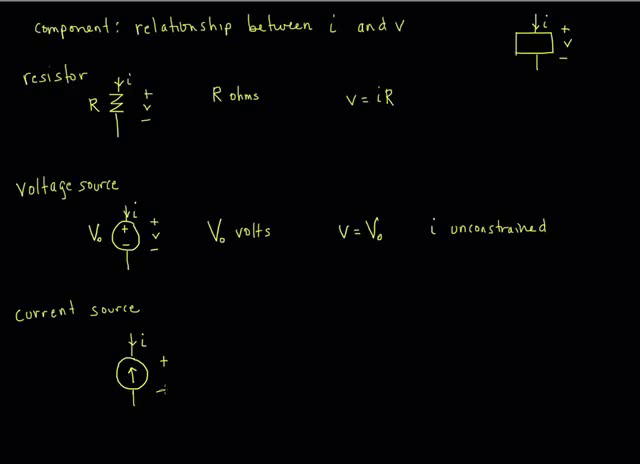 component: relationship between i and v
i + v −
resistor
i
R + v − R ohms v = iR
voltage source
i
V₀ + − + v − V₀ volts v = V₀ i unconstrained
current source
i
+
−